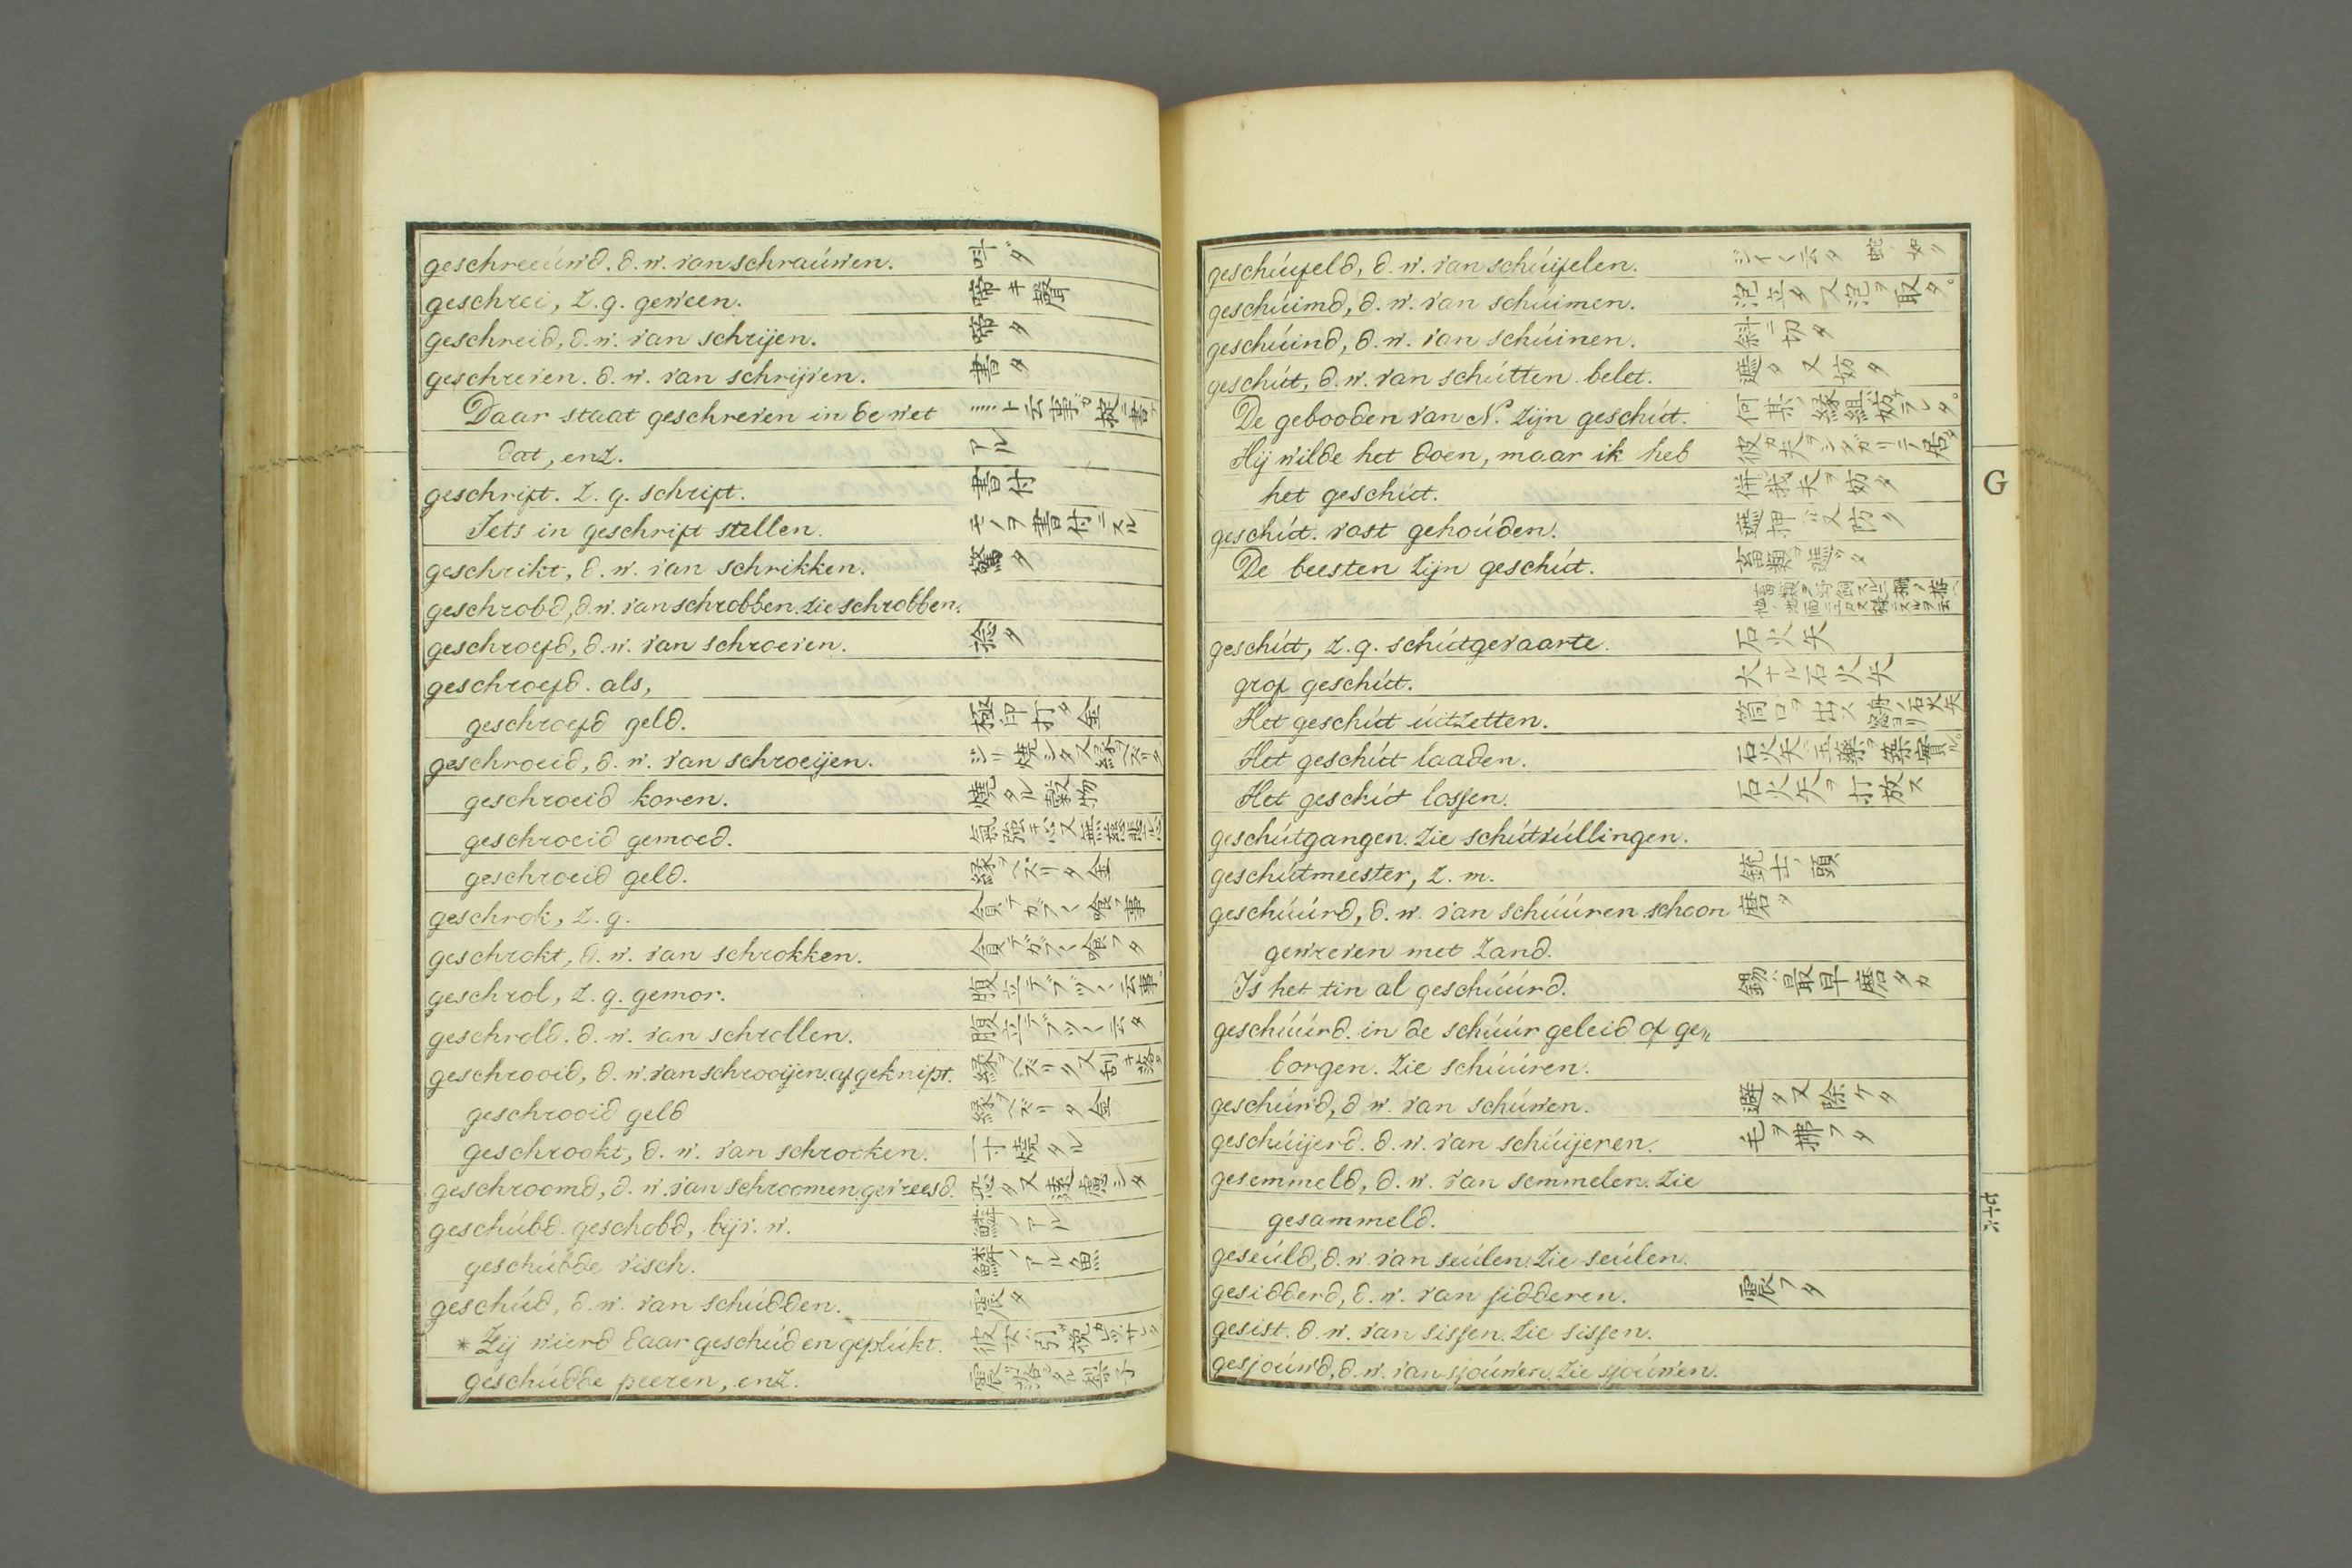 geschreeúwd. d. w. van schraúwen. 叫ダ
geschrei, z. g. geween. 啼キ聲
geschreid, d. w. van schrijen. 啼タ
geschreven. d. w. van schrijven. 書タ
Daar staat geschreven in de wet ……ト云事
dat, enz. アル
geschrift. z. g. schrift. 書付
Iets in geschrift stellen. モノヲ書付ニスル
geschrikt, d. w. van schrikken. 驚タ
geschrobd, d. w. van schrobben. zie schrobben.
geschroefd, d. w. van schroeven. 捻タ
geschroefd. als,
geschroefd geld. 極印打タ金
geschroeid, d. w. van schroeijen.
geschroeid koren. 燒タル穀物
geschroeid gemoed.
geschroeid geld. 緣ヲヘズリタ金
geschrok, z. g.
geschrokt, d. w. van schrokken.
geschrol, z. g. gemor. 腹立テブツ〱云事
geschrold. d. w. van schrollen. 腹立テブツ〱云タ
geschrooid, d. w. van schrooijen. afgeknipt.
geschrooid geld 緣ヲヘズリタ金
geschrookt, d. w. van schrooken. 一寸燒タル
geschroomd, d. w. van schroomen. gevreesd. 恐タ又遠慮シタ
geschúbd. geschobd, bijv. w. 鱗ノアル
geschúbde visch. 鱗ノアル魚
geschúd, d. w. van schúdden. 震タ
* Zij wierd daar geschúd en geplúkt.
geschúdde peeren, enz.
geschúifeld, d. w. van schúifelen.
geschúimd, d. w. van schúimen. 泡立タ又泡ヲ取タ。
geschúind, d. w. van schúinen. 斜ニ切タ
geschút, d. w. van schútten. belet. 遮タ又妨タ
De gebooden van N. zijn geschút.
Hij wilde het doen, maar ik heb
het geschút. 併我夫ヲ妨タ
geschút. vast gehoúden.
De beesten zijn geschút.
geschút, z. g. schútgevaarte. 石火矢
grof geschút. 大ナル石火矢
Het geschút úitzetten.
Het geschút laaden.
Het geschút lossen. 石火矢ヲ打放ス
geschútgangen. zie schútvúllingen.
geschútmeester, z. m. 銃士ノ頭
geschúúrd, d. w. van schúúren. schoon
gewreven met zand.
Is het tin al geschúúrd. 錫ハ最早磨タカ
geschúúrd. in de schúúr geleid of ge„
borgen. zie schúúren.
geschúwd, d. w. van schúwen. 避タ又除ケタ
geschúijerd. d. w. van schúijeren. 毛ヲ拂フタ
gesemmeld, d. w. van semmelen. zie
gesammeld.
geseúld, d. w. van seúlen. zie seúlen.
gesidderd, d. w. van sidderen. 震フタ
gesist. d. w. van sissen. zie sissen.
gesjoúwd, d. w. van sjoúwen. zie sjoúwen.
G